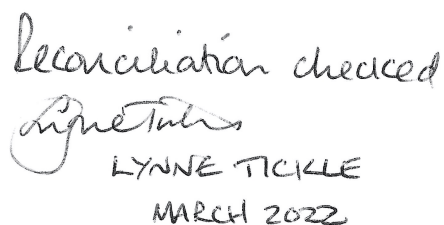 Reconciliation checked
Lynne Tickle
LYNNE TICKLE
MARCH 2022